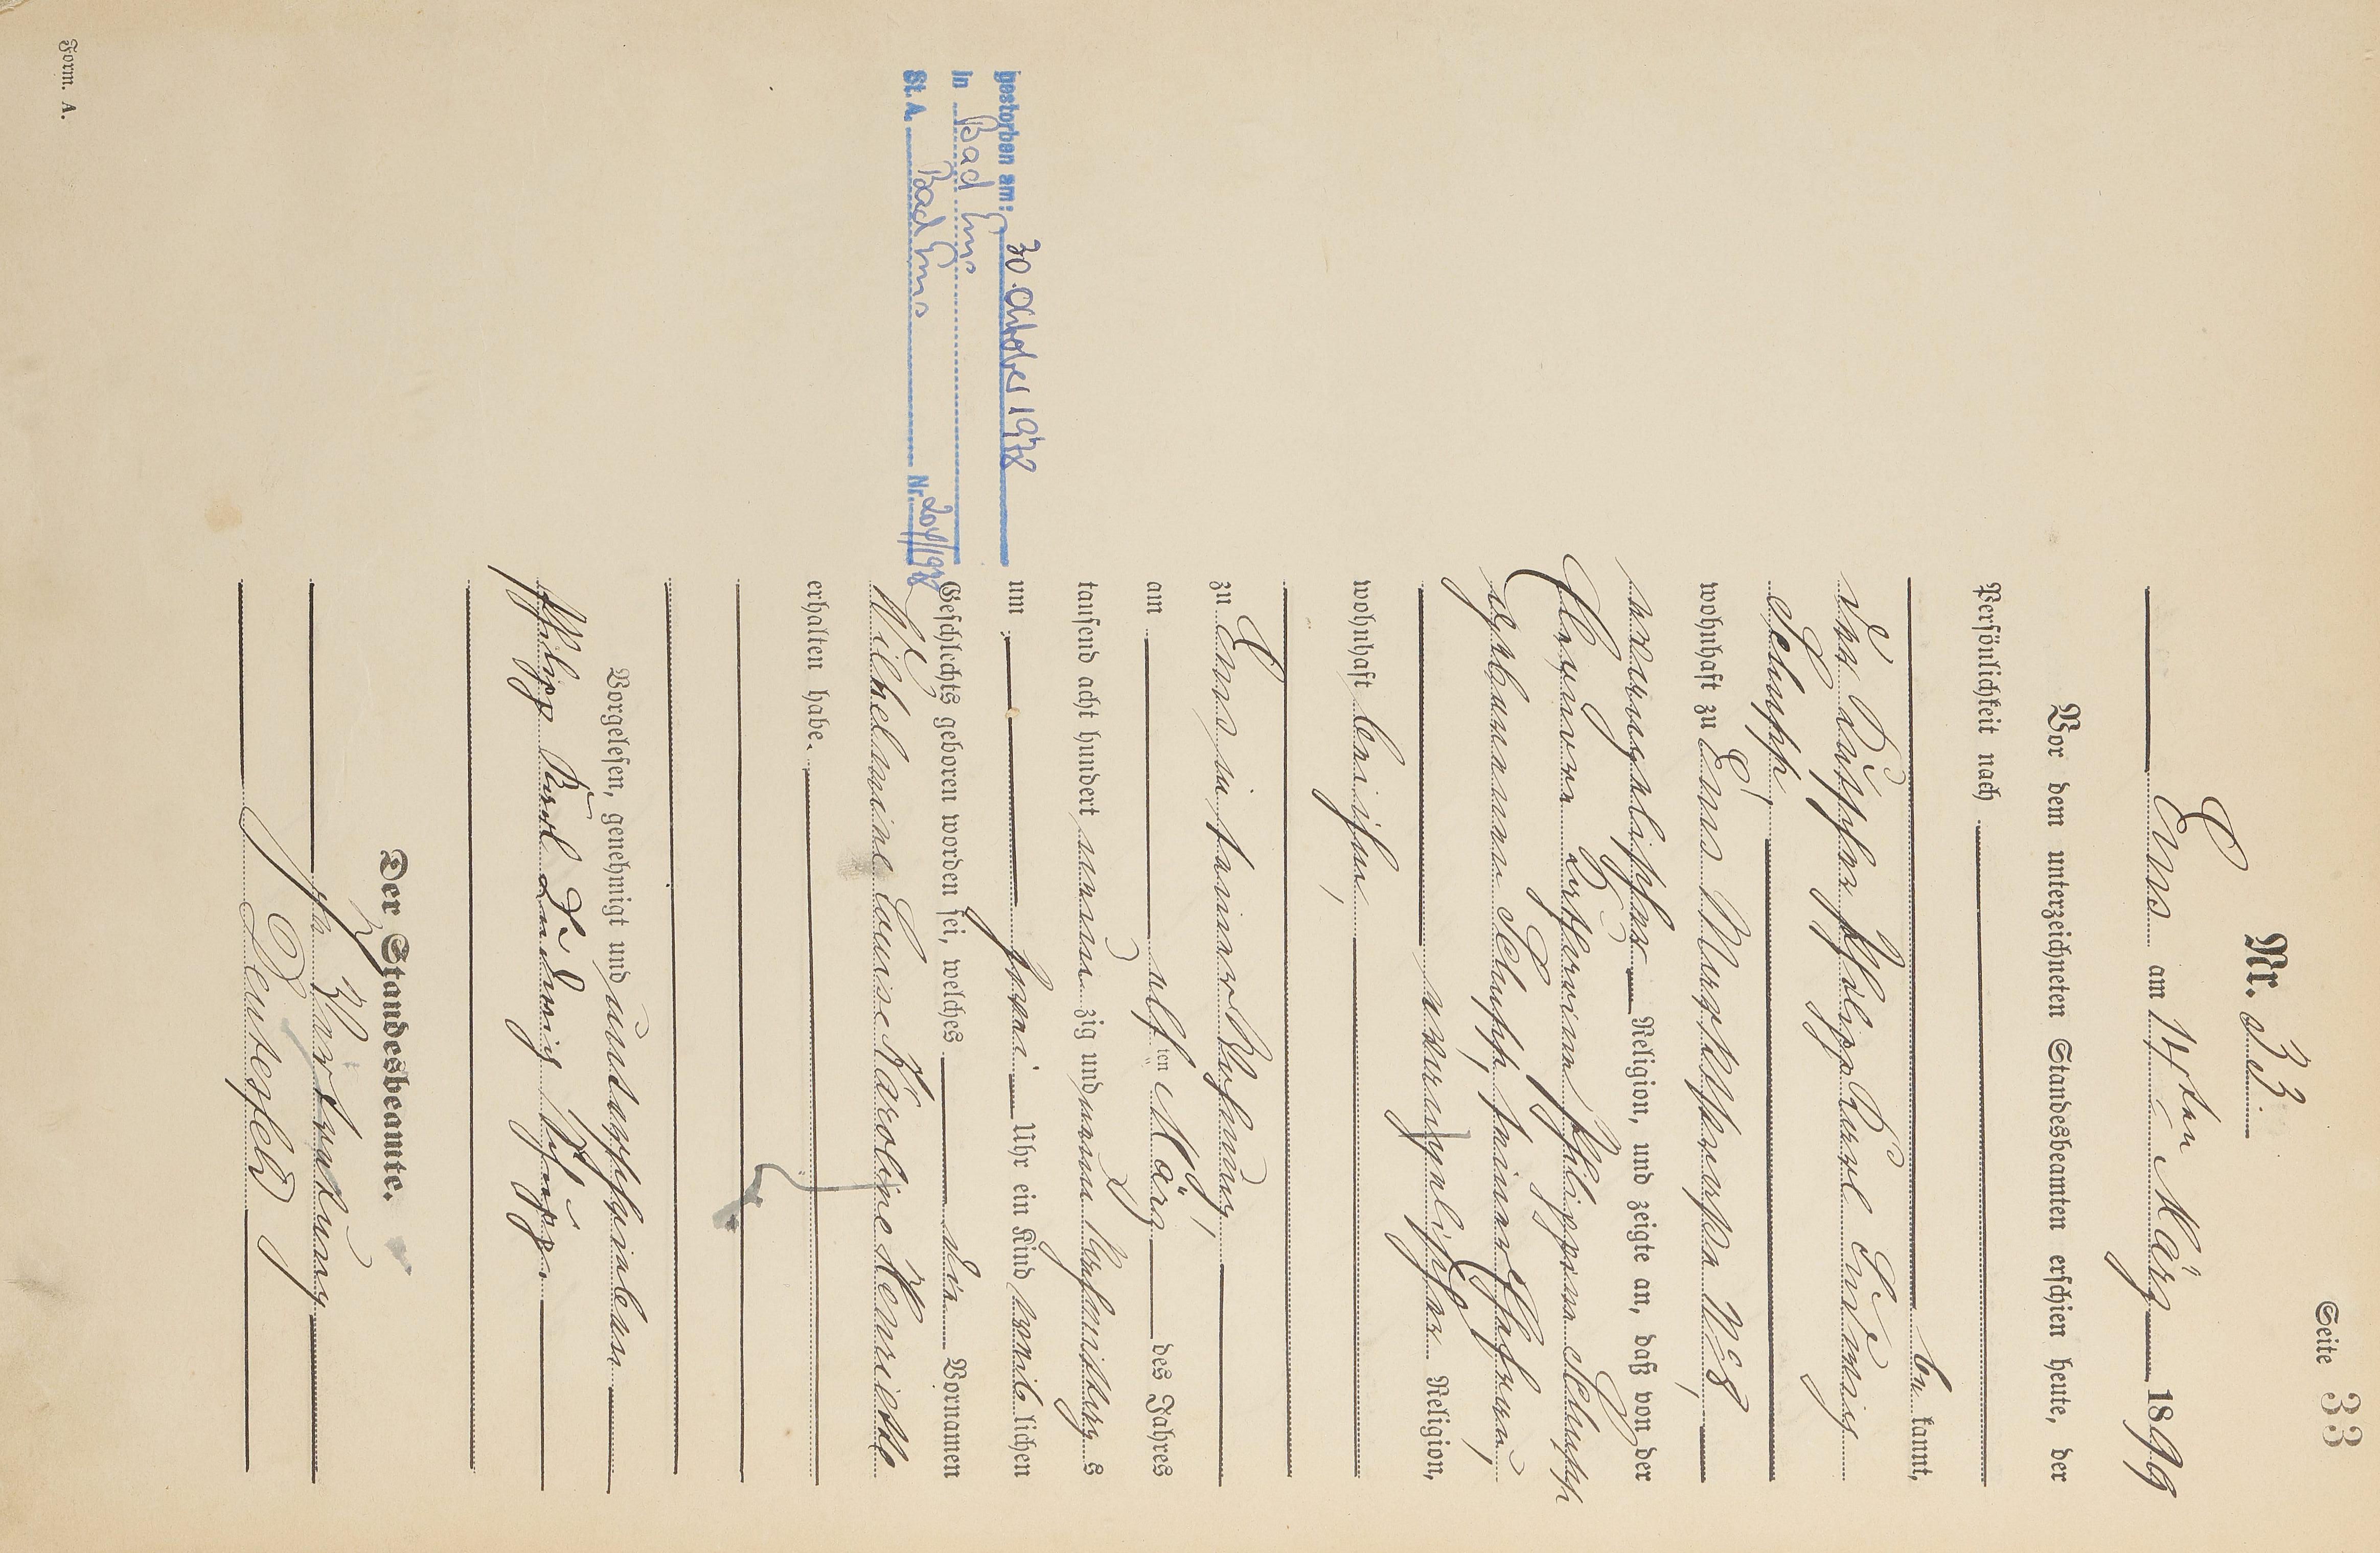 Seite 33
Nr. 33.
Ems am 14ten März 1899
Vor dem unterzeichneten Standesbeamten erschien heute, der
Persönlichkeit nach
be kannt,
der Kutscher Philipp Karl Ludwig
Schupp,
wohnhaft zu Ems Marktstraße No 8,
evangelischer Religion, und zeigte an, daß von der
Katharine Philippine Schupp
geborenen Schupp, seiner Ehefrau,
evangelischer Religion,
wohnhaft bei ihm,
zu Ems in seiner Wohnung,
am elf ten März des Jahres
tausend acht hundert neun zig und neun Nachmittag s
um zwei Uhr ein Kind weib lichen
Geschlechts geboren worden sei, welches die Vornamen
Wilhelmine Louise Karoline Henriette
erhalten habe.
Vorgelesen, genehmigt und unterschrieben
Philipp Karl Ludwig Schupp.
Der Standesbeamte.
In Vertretung
gestorben am: 30. Oktober 1978
in Bad Ems
St. A. Bad Ems Nr. 204/1978
Form. A.